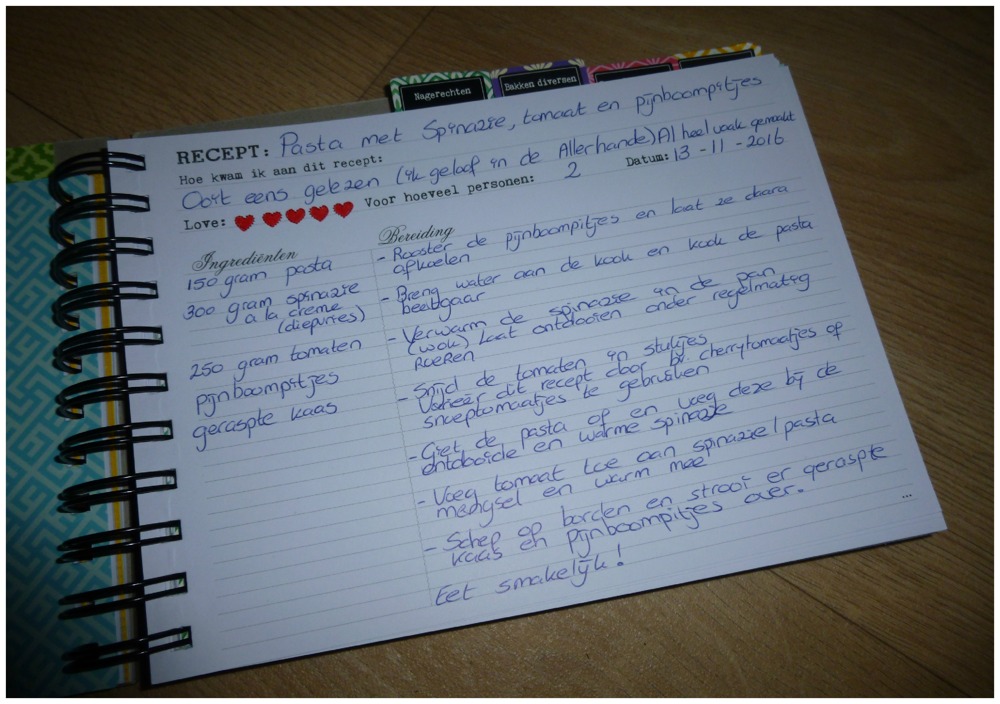 Nagerechten
Bakken diversen
RECEPT: Pasta met Spinazie, tomaat en pijnboompitjes
Hoe kwam ik aan dit recept:
Ooit eens gelezen (ik geloof in de Allerhande) Al heel vaak gemaakt
Love: Voor hoeveel personen: 2 Datum: 13-11-2016
Ingrediënten
150 gram pasta
300 gram spinazie
a la creme
(diepvries)
250 gram tomaten
pijnboompitjes
geraspte kaas
Bereiding
- Rooster de pijnboompitjes en laat ze daarna
afkoelen
- Breng water aan de kook en kook de pasta
beetgaar
- Verwarm de spinazie in de pan
(wok) laat ontdooien onder regelmatig
roeren
- Snijd de tomaten in stukjes
Varieer dit recept door bv. cherrytomaatjes of
snoeptomaatjes te gebruiken
- Giet de pasta op en voeg deze bij de
ontdooide en warme spinazie
- Voeg tomaat toe aan spinazie/pasta
mengsel en warm mee
- Schep op borden en strooi er geraspte
kaas en pijnboompitjes over.
Eet smakelijk!
...